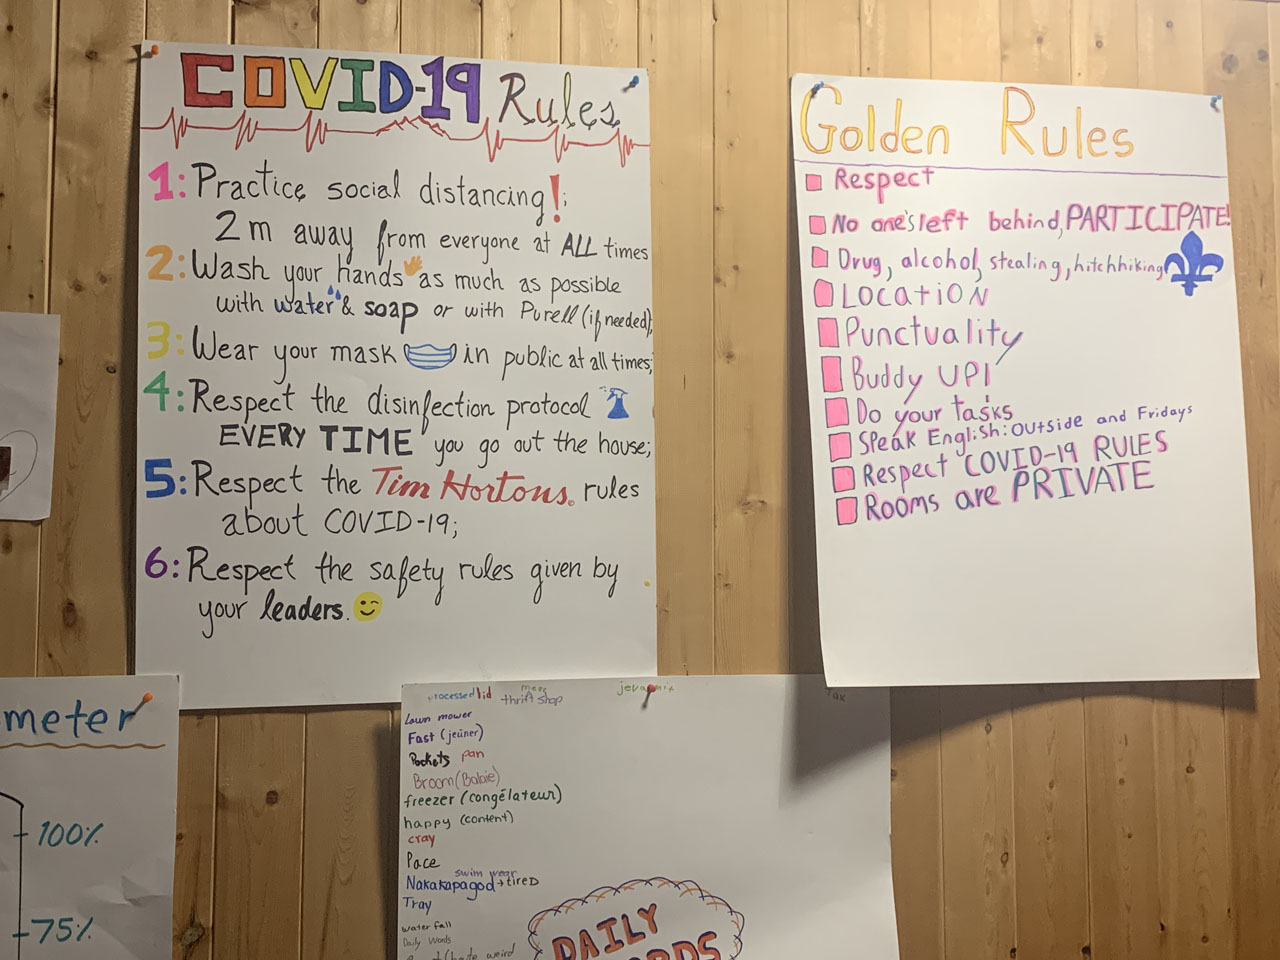 COVID-19 Rules
1: Practice social distancing!;
2m away from everyone at ALL times
2: Wash your hands as much as possible
with water & soap or with Purell (if needed);
3: Wear your mask in public at all times;
4: Respect the disinfection protocol
EVERY TIME you go out the house;
5: Respect the Tim Hortons. rules
about COVID-19;
6: Respect the safety rules given by
your leaders.
Golden Rules
Respect
No one's left behind, PARTICIPATE!
Drug, alcohol, stealing, hitchhiking
LOCATION
Punctuality
Buddy UP!
Do your tasks
Speak English: Outside and Fridays
Respect COVID-19 RULES
Rooms are PRIVATE
meter
100%
75%
rocessed lid
thrift shop
Lawn mower
Fast (jeûner)
Pockets pan
Broom (Balaie)
freezer (congélateur)
happy (content)
cray
Pace
swim wear
Nakakapagod → tired
Tray
water fall
Daily Words
weird
DAILY